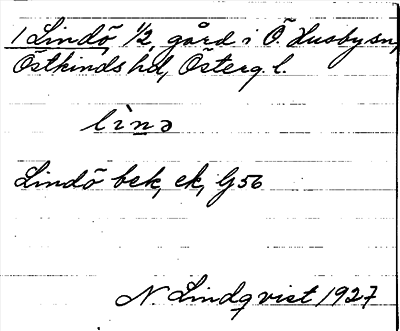 1 Lindö, 1/2 gård i Ö. Husby sn,
Östkinds hd, Österg. l.
lìnə
Lindö bek, ek, G56
N. Lindqvist 1927